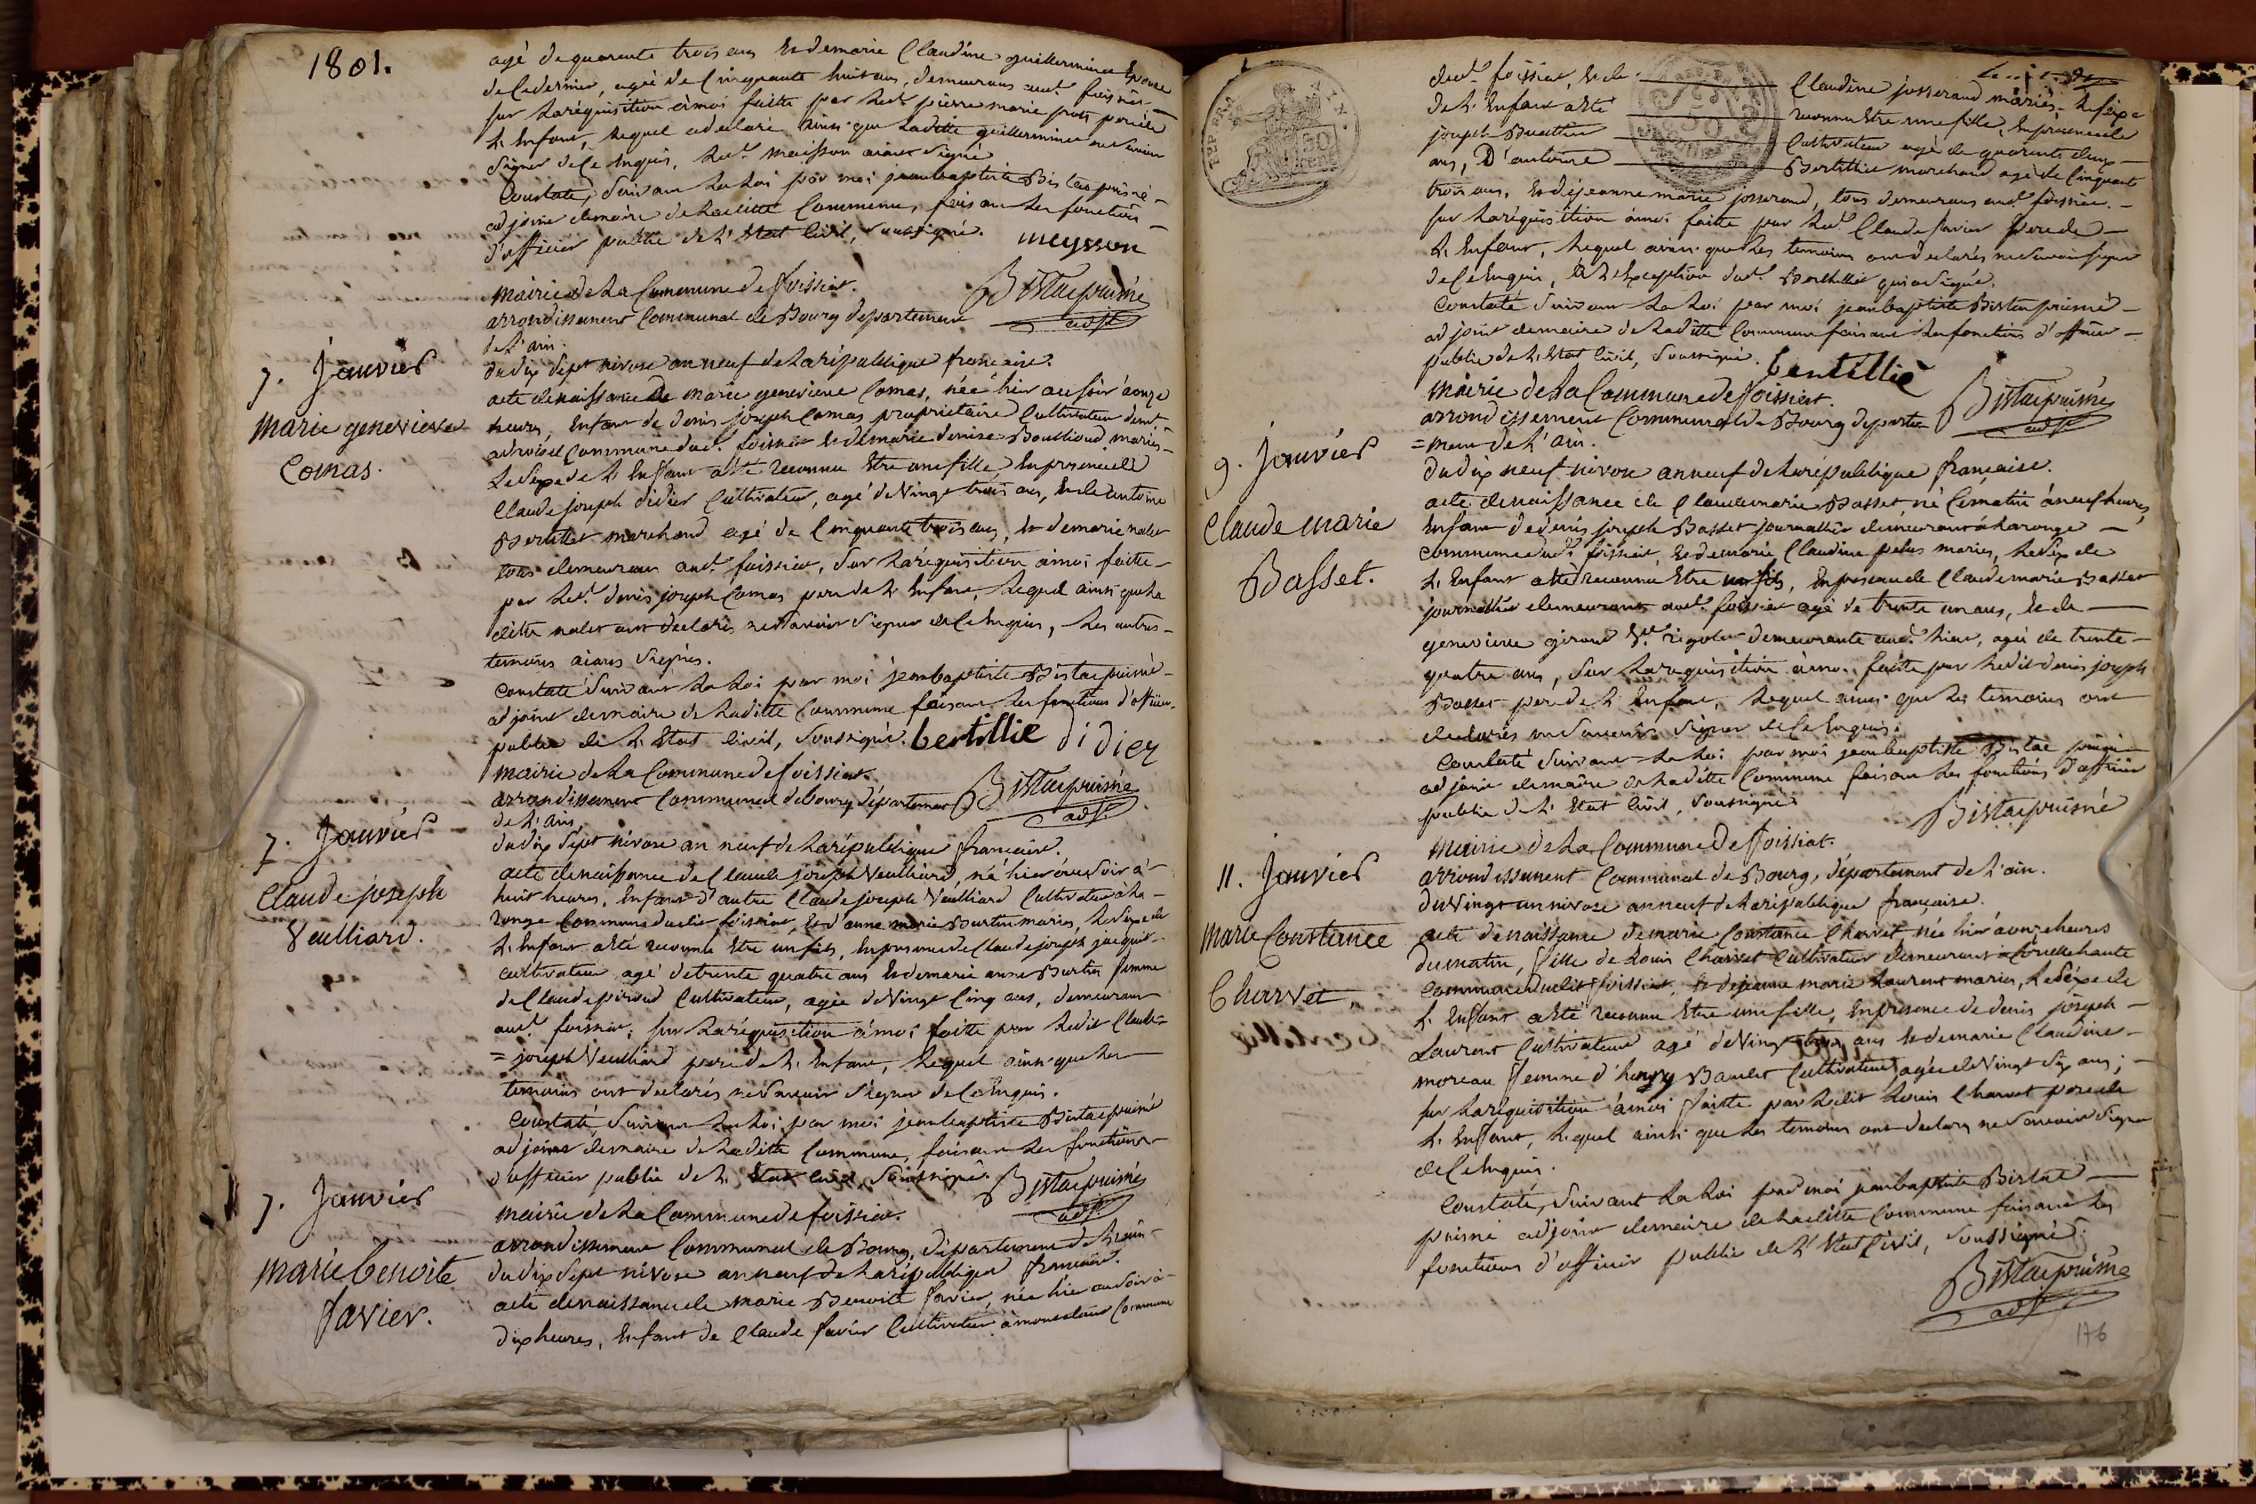 1801.
agé de quarente trois ans et de marie Claudine guillerminee Epouse
de Cedernier, agée de Cinquante huit ans, demeurans aud. foissiat.
sur la réquisition à moi faitte par led. pierre marie prost pere de
L. Enfant, Lequel a declaré ainsi que la ditte guillerminee ne savoir
signer de ce Enquis, Led. maisson aiant signé
Constaté, Suivant la Loi par moi jeanbaptiste Bistac puisné
adjoint demaire de laditte Commune, faisant les fonctions
d'officier public de L'Etat Civil, soussigné. meysson
Mairie de La Commune de foissiat. Bistacpuisné
arrondissement Communal de Bourg département adjt
de L'ain.
7. Janvier
du dix sept nivose an neuf de La république française.
acte de naissance de marie genevieve Comas, née hier au soir à onze
Marie genevieve
heures, Enfant de denis joseph Comas propriétaire Cultivateur demt
Comas.
Commune dud. foissiat et de marie denise Boullioud mariés
Le Sexe de L. Enfant a été reconnu Etre une fille En presence de
Claude joseph didier Cultivateur, agé de Vingt trois ans, et de antoine
Bertillet marchand agé de Cinquante trois ans, et de marie nalet
tous demeurans aud. foissiat, Sur La réquisition à moi faitte
par Led. denis joseph Comas pere de L. Enfant, Lequel ainsi que La
ditte nalet ont declarés ne savoir signer de ce Enquis, Les autres
temoins aians Signés.
constaté suivant La Loi par moi jeanbaptiste Bistac puisné
adjoint demaire de Laditte Commune faisant Les fonctions d'officier
public de L. Etat Civil, Soussigné. bertillié didiey
Mairie de La Commune de foissiat. Bistacpuisné
arrondissement Communal de bourg département adjt
de L'ain.
7. Janvier
du dix Sept nivose an neuf de La république française.
Claude joseph
acte de naissance de Claude joseph Veulliard, né hier au soir à
huit heures, Enfant d'autre Claude joseph Veulliard Cultivateur à La
Veulliard.
ronge Commune dudit foissiat, et d'anne marie Burtin mariés, Le Sexe de
L. Enfant a été reconnu Etre un fils, En presence de Claude joseph
cultivateur agé de trente quatre ans et de marie anne Burtin femme
de Claude piroud Cultivateur, agée de Vingt Cinq ans, demeurans
aud. foissiat; sur La réquisition à moi faitte par Ledit Claude
= joseph Veulliard pere de L. Enfant, Lequel ainsi que Les
temoins ont declarés ne Savoir signer de ce Enquis.
Constaté, Suivant La Loi par moi jeanbaptiste Bistacpuisné
adjoint demaire de Laditte Commune, faisant Les fonctions
d'officier public de L. Etat Civil, Soussigné. Bistacpuisné
Mairie de La Commune de foissiat. adjt
7. Janvier
arrondissement Communal de Bourg, département de L'ain.
Marie benoite
du dix Sept nivose an neuf de La république française.
favier.
acte de naissance de marie Benoite favier, née hier au soir à
dix heures, Enfant de Claude favier Cultivateur à Commune
dud. foissiat, et de Claudine josserand mariés. Le Sexe
de L. Enfant a été reconnu Etre une fille, En presence de
joseph Cultivateur agé de quarente deux
ans, D'antoine Bertillier marchand agé de Cinquante
trois ans, et de jeanne marie josserand, tous demeurans aud. foissiat.
sur La réquisition à moi faitte par Led. Claude favier pere de
L. Enfant, Lequel ainsi que Les temoins ont declarés ne savoir signer
de ce Enquis, à L'exception dud. Bertillier qui a signé.
Constaté suivant La Loi par moi jeanbaptiste Bistac puisné
adjoint demaire de Laditte Commune faisant Les fonctions d'officier
public de L. Etat Civil, Soussigné. bertillié
Mairie de La Commune de foissiat. Bistacpuisné
arrondissement Communal de Bourg départe adjt
= ment de L'ain.
9. Janvier
du dix neuf nivose an neuf de La république française.
Claude marie
acte de naissance de Claudemarie Basset, né Ce matin à neuf heures,
Basset.
Enfant de denis joseph Basset journallier demeurant à La ronge
commune dud. foissiat, et de marie Claudine pelus mariés, Le Sexe de
L. Enfant a été reconnu Etre un fils, En presence de Claudemarie Basset
journallier demeurant aud. foissiat agé de trente un ans, et de
genevieve girard Ve. rigolet demeurante aud. lieu, agée de trente
quatre ans, Sur La requisition à moi faitte par Ledit denis joseph
Basset pere de L. Enfant, Lequel ainsi que Les temoins ont
declarés ne Savoir Signer de ce Enquis.
Constaté Suivant La Loi par moi jeanbaptiste Bistac puisné
adjoint demaire de Laditte Commune faisant Les fonctions d'officier
public de L. Etat Civil, Soussigné. Bistacpuisné
Mairie de La Commune De foissiat.
11. Janvier
arrondissement Communal de Bourg, département de L'ain.
du Vingt un nivose an neuf de La république française.
Marie Constance
acte de naissance de marie Constance Charvet née hier à onze heures
du matin, fille de Louis Charvet Cultivateur demeurant à
Charvet.
Commune dudit foissiat, et de jeanne marie Laurent mariés, Le Séxe de
L. Enfant a été reconnu Etre une fille, En presence de denis joseph
Laurent Cultivateur agé de Vingt trois ans et de marie Claudine
moreau femme d'henry Baulet Cultivateur, agée de Vingt Six ans;
sur La réquisition à moi faitte par Ledit Louis Charvet pere de
L. Enfant, Lequel ainsi que Les temoins ont declarés ne Savoir Signer
de ce Enquis.
Constaté, suivant La Loi par moi jeanbaptiste Bistac
puisné adjoint demaire de Laditte Commune faisant Les
fonctions d'officier public de L'Etat Civil, Soussigné.
Bistacpuisné
adjt
176